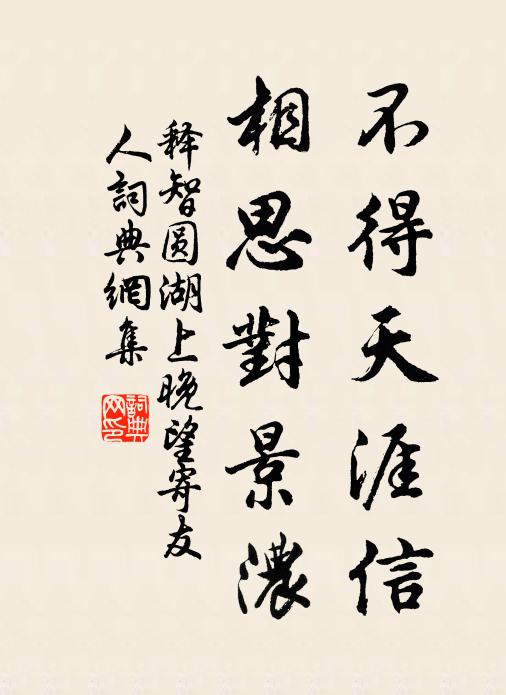 不得天涯信
相思對景濃
释智圆湖上晚望寄友
人詞典網集
詞典网印